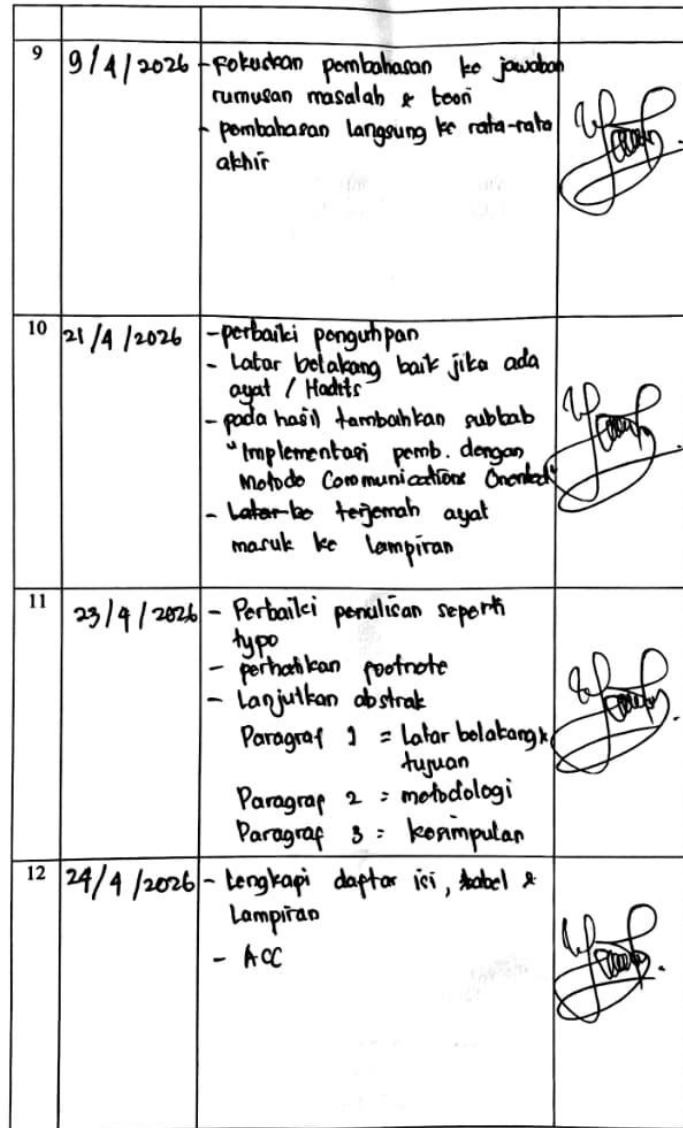 9 9/4/2026 - Fokuskan pembahasan ke jawaban
rumusan masalah & teori
- pembahasan langsung ke rata-rata
akhir
10 21/4/2026 - perbaiki pengutipan
- Latar belakang baik jika ada
ayat / Hadits
- pada hasil tambahkan subbab
"Implementasi pemb. dengan
Metode Communications Oriented"
- Latar be terjemah ayat
masuk ke lampiran
11 23/4/2026 - Perbaiki penulisan seperti
typo
- perhatikan footnote
- Lanjutkan abstrak
Paragraf 1 = Latar belakang &
tujuan
Paragraf 2 = metodologi
Paragraf 3 = kesimpulan
12 24/4/2026 - Lengkapi daftar isi, tabel &
Lampiran
- ACC